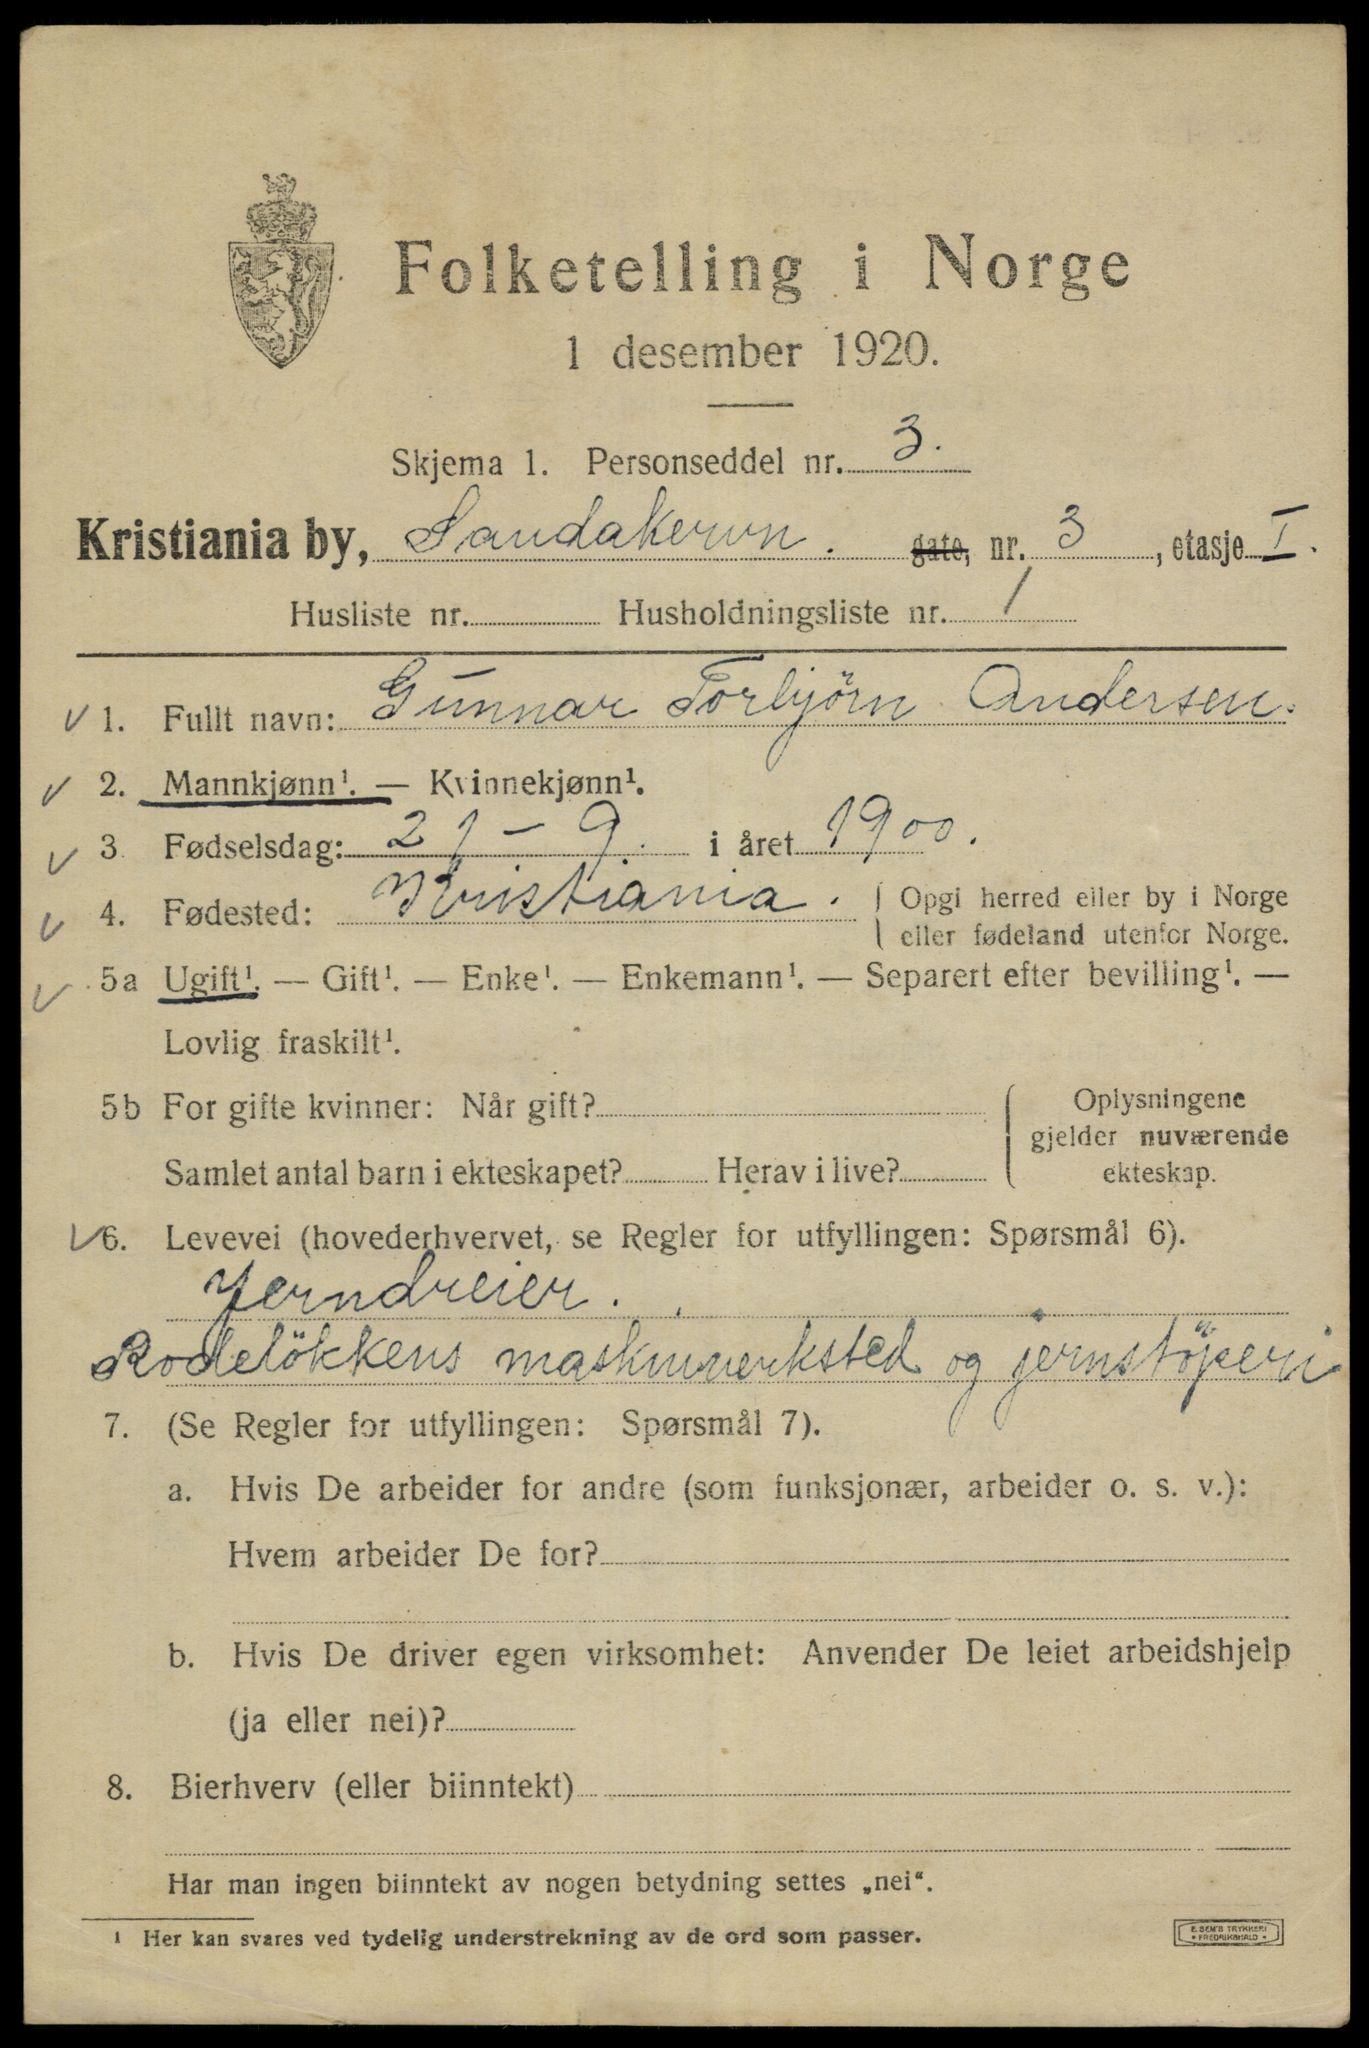 Folketelling i Norge
1 desember 1920.
Skjema 1. Personseddel nr. 3.
Kristiania by, Sandakervn. gate, nr. 3, etasje I.
Husliste nr. Husholdningsliste nr. 1
1. Fullt navn: Gunnar Torbjörn Andersen.
2. Mannkjønn¹. — Kvinnekjønn¹.
3 Fødselsdag: 21 – 9. i året 1900.
4. Fødested: Kristiania. Opgi herred eller by i Norge
eller fødeland utenfor Norge.
5a Ugift¹. — Gift¹. — Enke¹. — Enkemann¹. — Separert efter bevilling¹. —
Lovlig fraskilt¹.
5b For gifte kvinner: Når gift?
Samlet antal barn i ekteskapet? Herav i live?
Oplysningene
gjelder nuværende
ekteskap.
6. Levevei (hovederhvervet, se Regler for utfyllingen: Spørsmål 6).
Jerndreier.
Rodeløkkens maskinverksted og jernstöperi
7. (Se Regler for utfyllingen: Spørsmål 7).
a. Hvis De arbeider for andre (som funksjonær, arbeider o. s. v.):
Hvem arbeider De for?
b. Hvis De driver egen virksomhet: Anvender De leiet arbeidshjelp
(ja eller nei)?
8. Bierhverv (eller biinntekt)
Har man ingen biinntekt av nogen betydning settes „nei“.
¹ Her kan svares ved tydelig understrekning av de ord som passer.
E. SEM'S TRYKKERI
• FREDRIKSHALD •